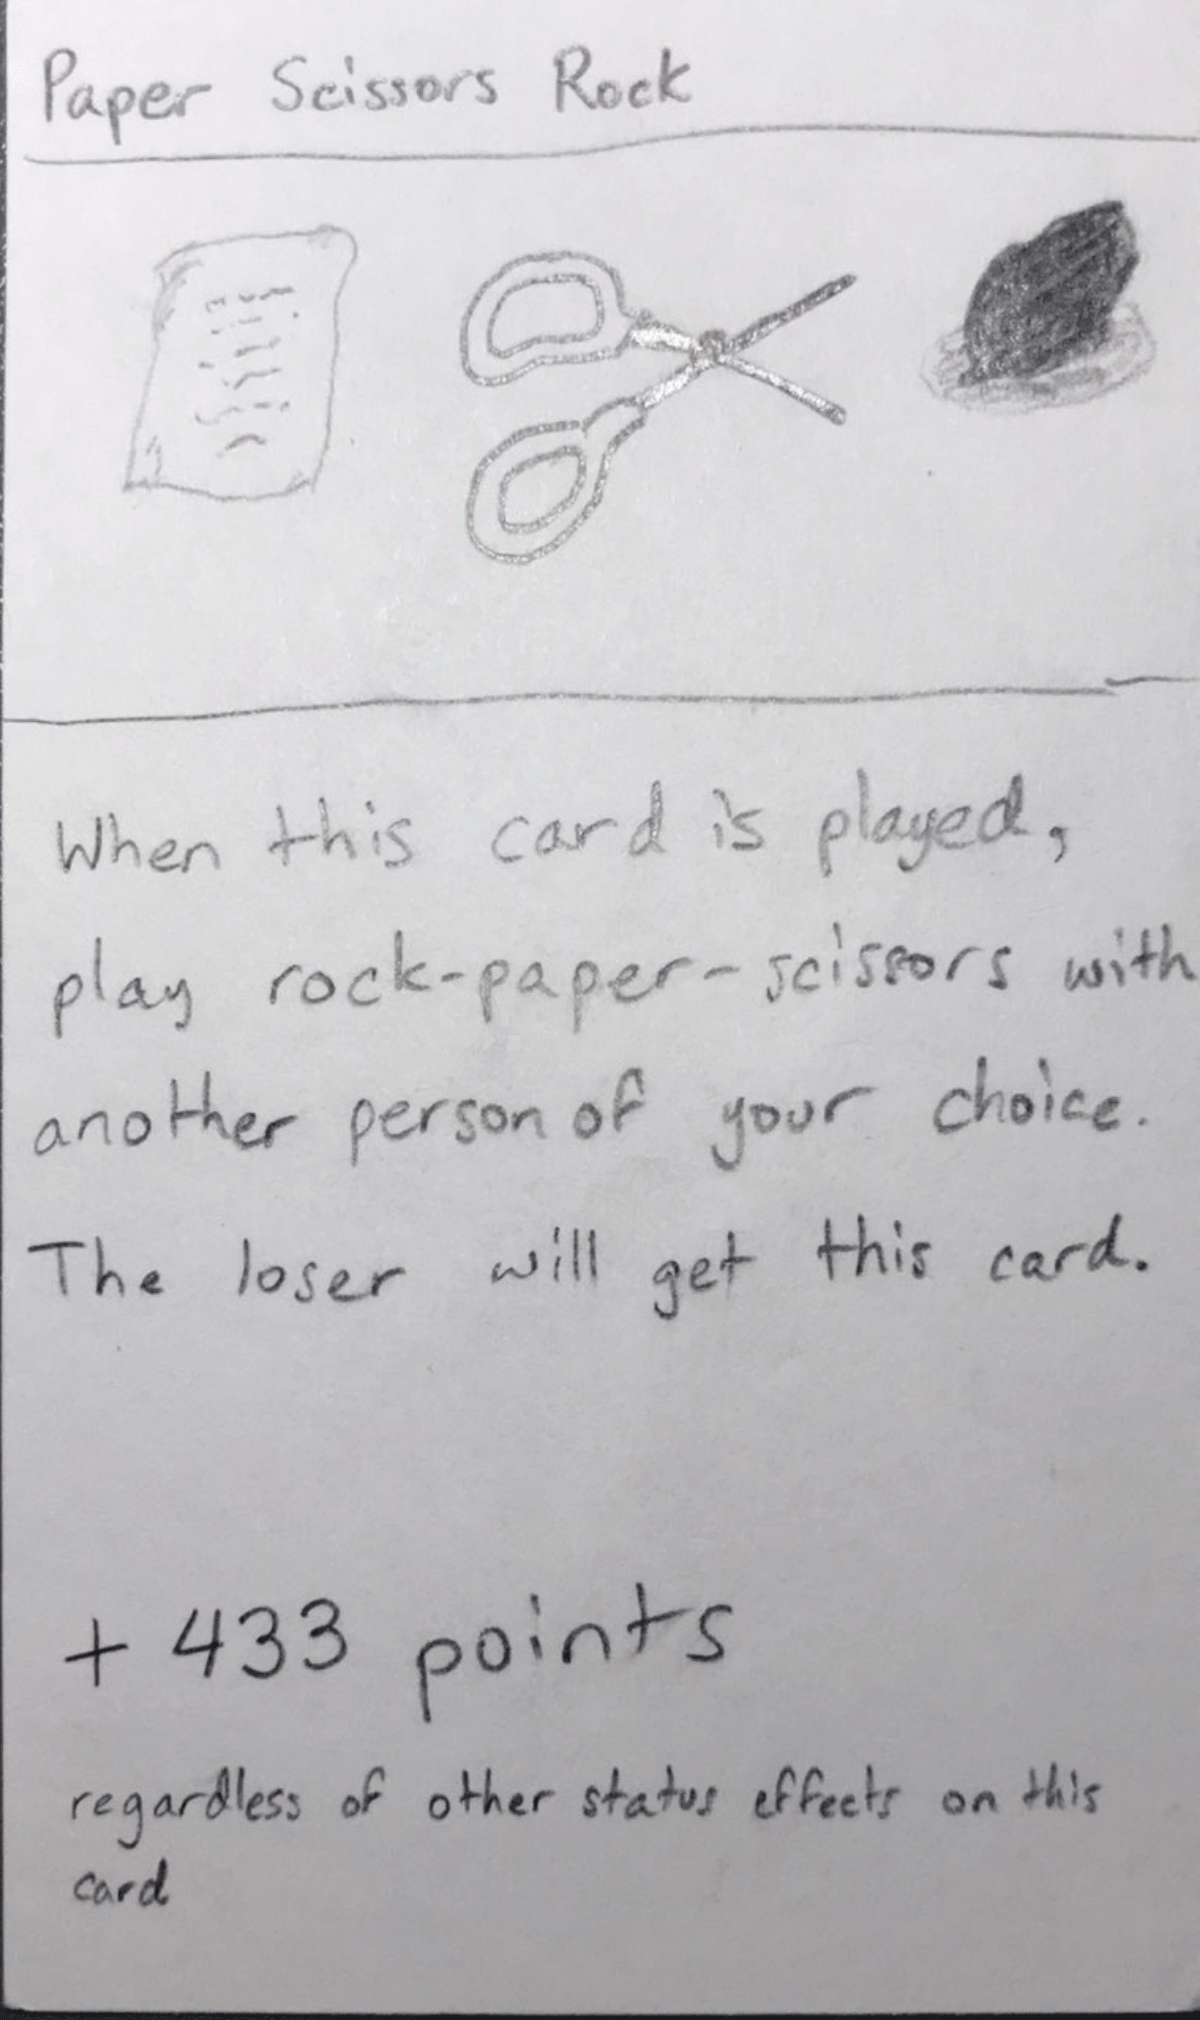 Paper Scissors Rock
When this card is played,
play rock-paper-scissors with
another person of your choice.
The loser will get this card.
+ 433 points
regardless of other status effects on this
card